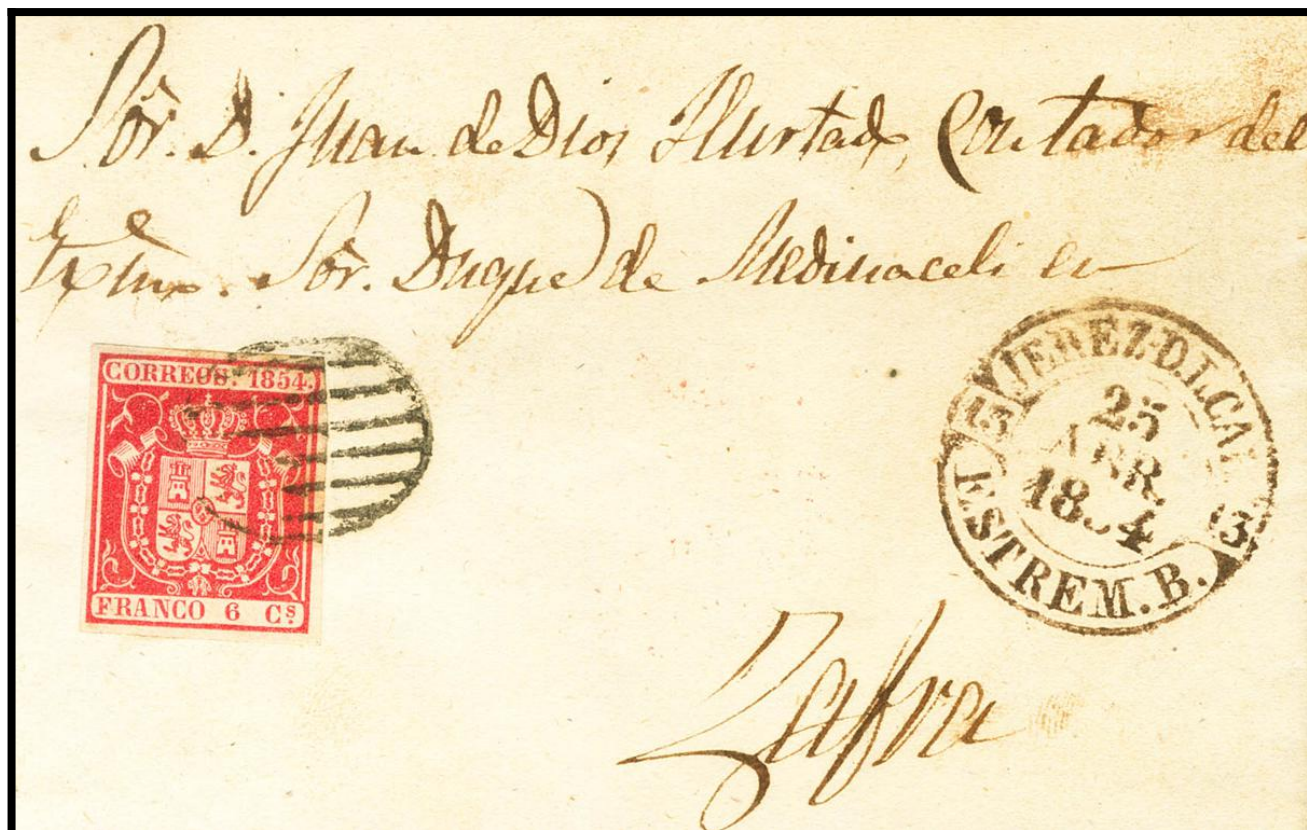 Sör. D. Juan de Dios Hurtado, Contador del
Exmo. Sör. Duque de Medinaceli en
CORREOS. 1854.
FRANCO 6 Cs.
JEREZ.D.L.CA.
25
ABR.
1854
ESTREM.B.
Zafra